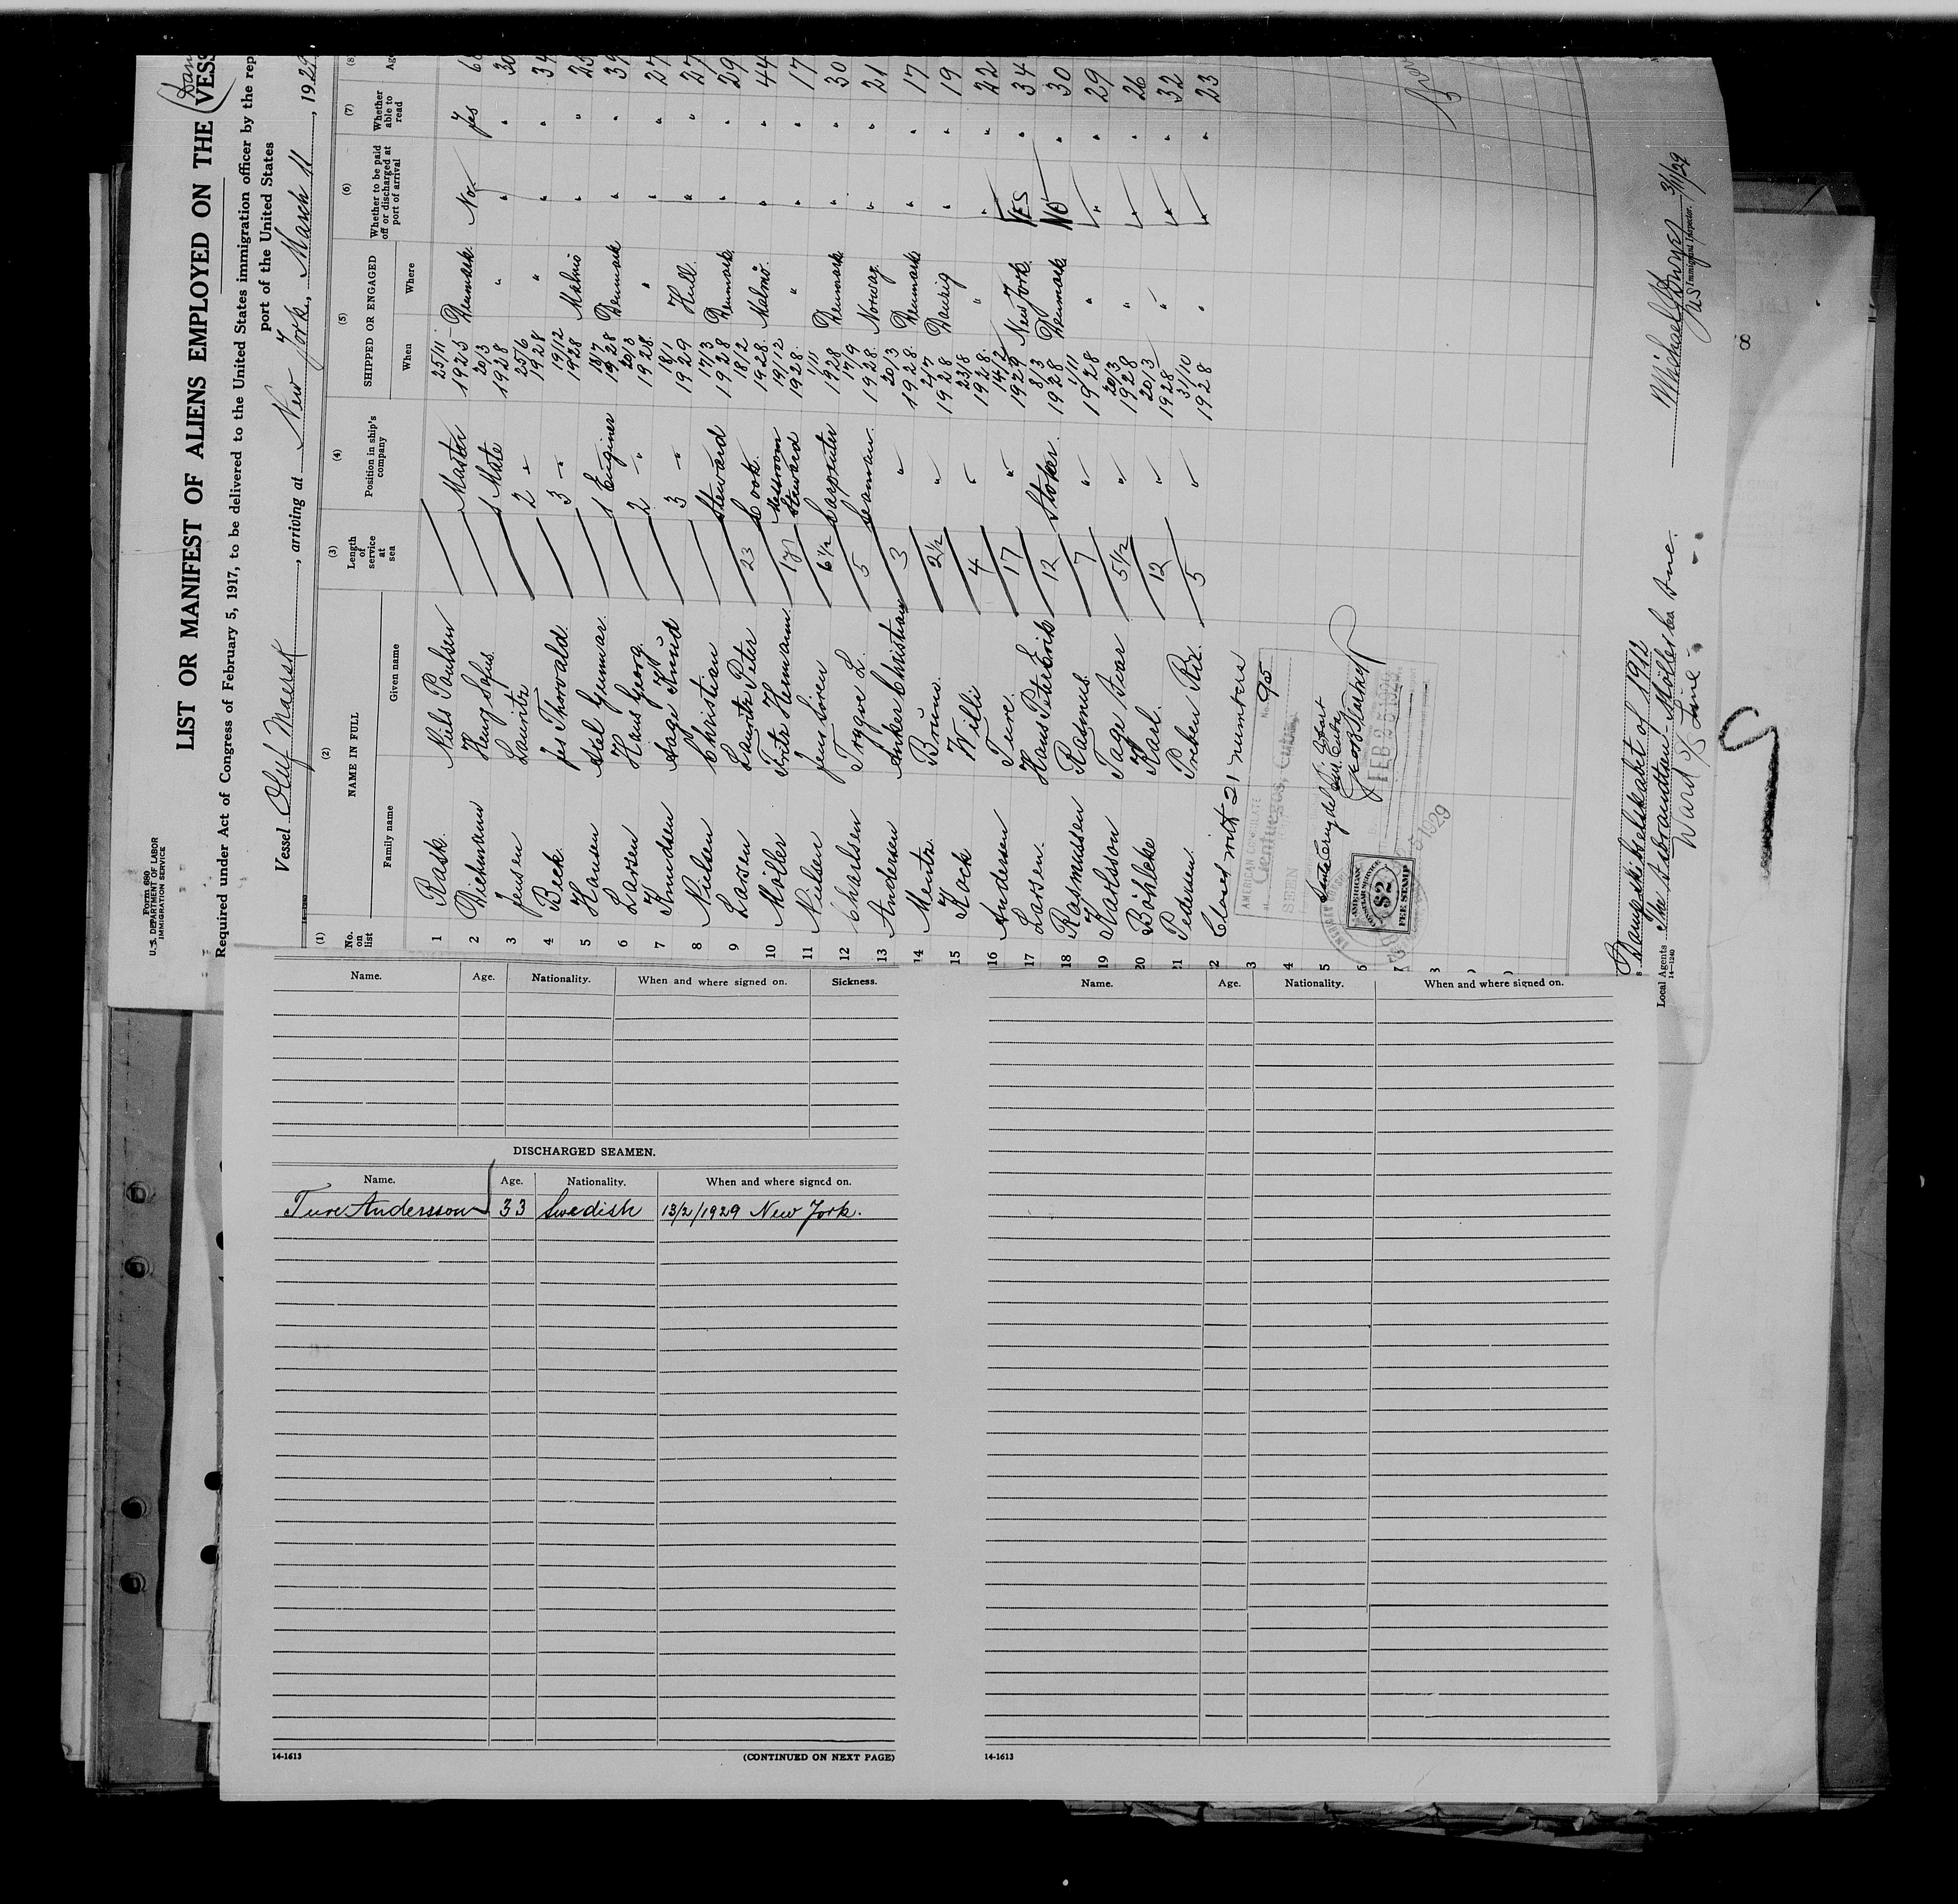 Form 680
U.S. DEPARTMENT OF LABOR
IMMIGRATION SERVICE
LIST OR MANIFEST OF ALIENS EMPLOYED ON THE VESS
Required under Act of Congress of February 5, 1917, to be delivered to the United States immigration officer by the rep
port of the United States
Vessel Oluf Maersk, arriving at New York, March 11, 1929
(1) (2) (3) (4) (5) (6) (7) (8)
No. on list NAME IN FULL Length of service at sea Position in ship's company SHIPPED OR ENGAGED Whether to be paid off or discharged at port of arrival Whether able to read Ag
Family name Given name When Where
1 Rask. Niels Poulsen Master 25/11 1925 Denmark. No Yes
2 Diekmann Henry Sofus. 1 Mate 20/3 1928 " " " 30
3 Jensen Lauritz 2 " 25/6 1928 " " " 34
4 Beck. Jes Thorvald. 3 " 19/12 1928 Malmö " "
5 Hansen Axel Gunnar 1 Enginer 18/7 1928 Denmark " "
6 Larsen Hans Georg. 2 " 20/3 1928 " " " 27
7 Knudsen Aage Knud 3 " 18/1 1929 Hull. " " 27
8 Nielsen Christian Steward 17/3 1928 Denmark. " " 29
9 Larsen Lauritz Peter 23 Cook. 18/2 1928. Malmö. " " 44
10 Möller Fritz Hermann. Messroom Steward 19/12 1928. " " " 17
11 Nielsen Jens Sören 6 1/2 Carpenter 1/11 1928 Denmark " " 30
12 Charlsen Trygve L. 5 Seaman. 17/9 1928. Norway. " " 21
13 Andersen Anker Christian 3 " 20/3 1928. Denmark " " 17
14 Mentz. Bruno. 2 1/2 " 2/7 1928 Danzig " " 19
15 Kock Willi 4 " 23/8 1928. " " " 22
16 Andersen Ture. 17 " 14/2 1929 New York. YES " 34
17 Larsen. Hans Peter Erik 12 Stoker. 8/3 1928 Denmark. NO " 30
18 Rasmussen Rasmus. 7 " 1/11 1928 " " " 29
19 Karlsson Tage Ivar 5 1/2 " 20/3 1928 " " " 26
20 Böhleke Karl. 12 " 20/3 1928 " " " 32
21 Pedersen. 5 " 31/10 1928 " " " 23
Closed with 21 numbers
AMERICAN CONSULATE
at Cienfuegos, Cuba
SEEN
No. 95
FEB 25 1929
AMERICAN
$2
FEE STAMP
1929
Dampskibsselskabet of 1912
Local Agents The Isbrandtsen-Möller
14-1240
Michael
US Immigrant Inspector. 3/11/29
8
Name. Age. Nationality. When and where signed on. Sickness.
DISCHARGED SEAMEN.
Name. Age. Nationality. When and where signed on.
Ture Andersson 33 Swedish 13/2/1929 New York.
14-1613 (CONTINUED ON NEXT PAGE)
Name. Age. Nationality. When and where signed on.
14-1613